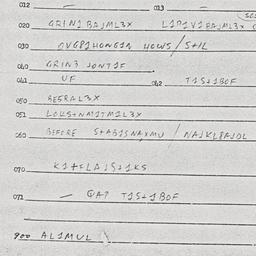 012 — 013
020 GRIN1 BAJML3X L1P1V1BAJML3X
030 OVG81HONG1N HOWS/S+IL
040 GRIN3 JONT1F
041 UF 042 T1S+1BOF
050 RE5RAL3X
051 LOKS+NMITMIL3X
060 BEFORE S+AB1SNAXMU / NAJKL8AJOL
070 K1+FLAJS+1KS
071 — QAT T1S+1BOF
900 AL1MUL